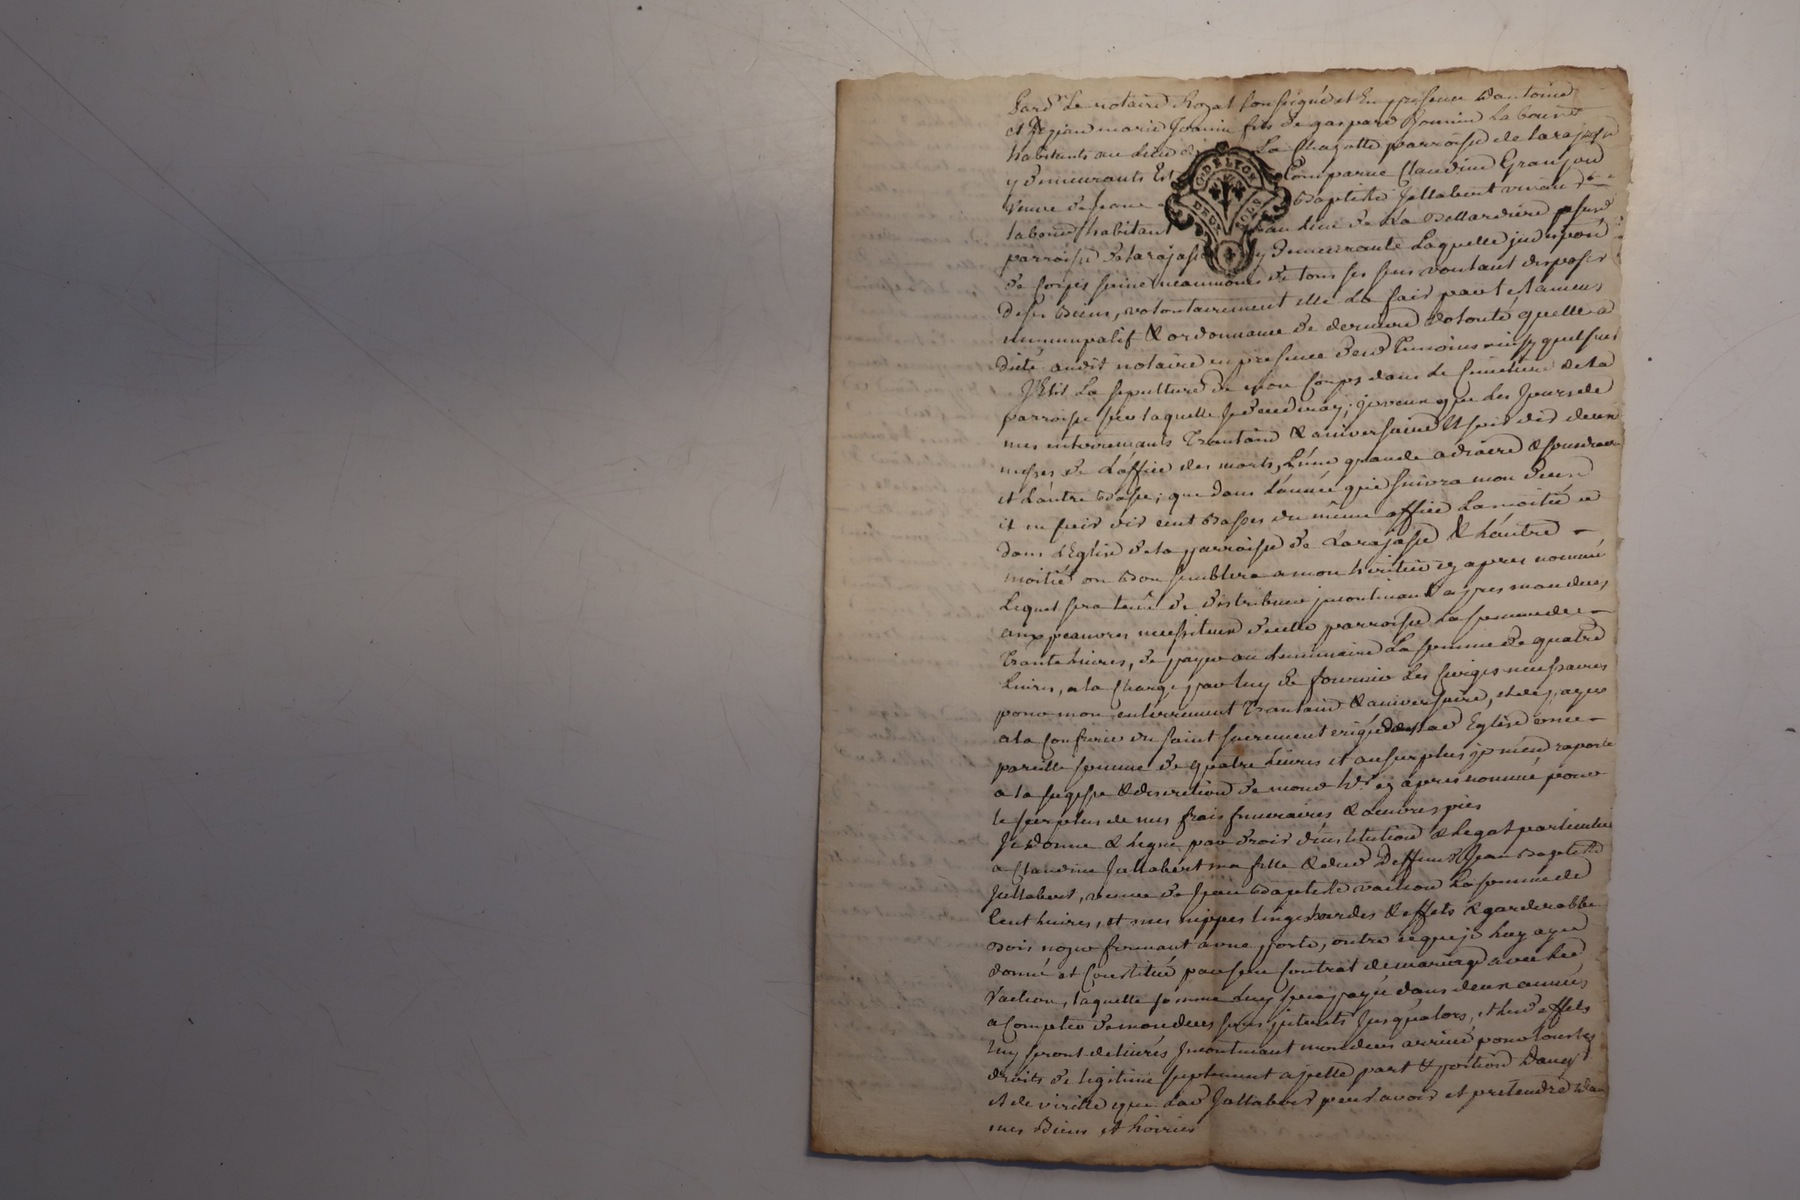 Pard. Le notaire Royal soussigné et En presence d'antoine
et Jean marie Jeanin fils de gaspard Jeannin Laboureurs
habitants au Lieu de La Chazotte parroisse de Larajasse
y demeurants Est Comparue Claudine Granjon
Veuve de Jeane Baptiste Jullabert vivan
laboureur habitant au lieu de La Bellardiere susd
parroisse de larajasse y demeurante Laquelle indisposée
de corps saine neanmoins de tous ses sens voulant disposer
de ses Biens, volontairement elle La fait par testament
nuncupatif & ordonnance de derniere volonté quelle a
dicté audit notaire en presence desd temoins ainsy que suit
J'Elit La sepulture de mon Corps dans Le Cimetiere de la
parroisse sur laquelle je decederay; je veux que Les Jours de
mes enterrements Trantaine & aniversaire Il soit dit deux
messes de L'office des morts, L'une grande a diacre & sousdiacre
et L'autre Basse; que dans L'année qui suivra mon deces
il en soit dit cent Basses du même office La moitié
dans L'Eglise de la parroisse de Larajasse & L'autre
moitié ou Bon semblera a mon heritier cy apres nommé
Lequel sera tenu de distribuer incontinant apres mon deces,
aux peauvres necessiteux de cette parroisse La somme de
Trante Livres, de payer au Luminaire La somme de quatre
Livres, a la Charge par Luy de fournir Les Cierges necessaires
pour mon enterrement Trantaine & aniversaire, et de payer
a la Confrerie du Saint Sacrement erigée dans Lad Eglise une
pareille somme de quatre Livres et au surplus je m'en raporte
a la sagesse & discretion de mond hr. cy apres nommé pour
le surplus de mes frais funeraires & œuvres pies
Je donne & Legue par droit d'institution & Legat particulier
a Claudine Jullabert ma fille & dud Deffunt Jean Baptiste
Jullabert, veuve de Jean Baptiste vachon La somme de
Cent Livres, et mes nippes linges hardes & effets & garderobbe
Bois noyer fermant a une porte, outre ce que je Luy ay
donné et Constitué par son Contrat de mariage avec Led
Vachon, Laquelle somme Luy sera payée dans deux années
a Compter de mon deces sans interets Jusqu'alors, et Lesd effets
Luy seront delivrés Incontinant mon deces arrivé pour tous ses
droits de legitime suplement a jcelle part & portion
et de virille que Lad Jullabert peut avoir et pretendre dans
mes Biens et hoiries
G. DE LYON
DEUX SOLS